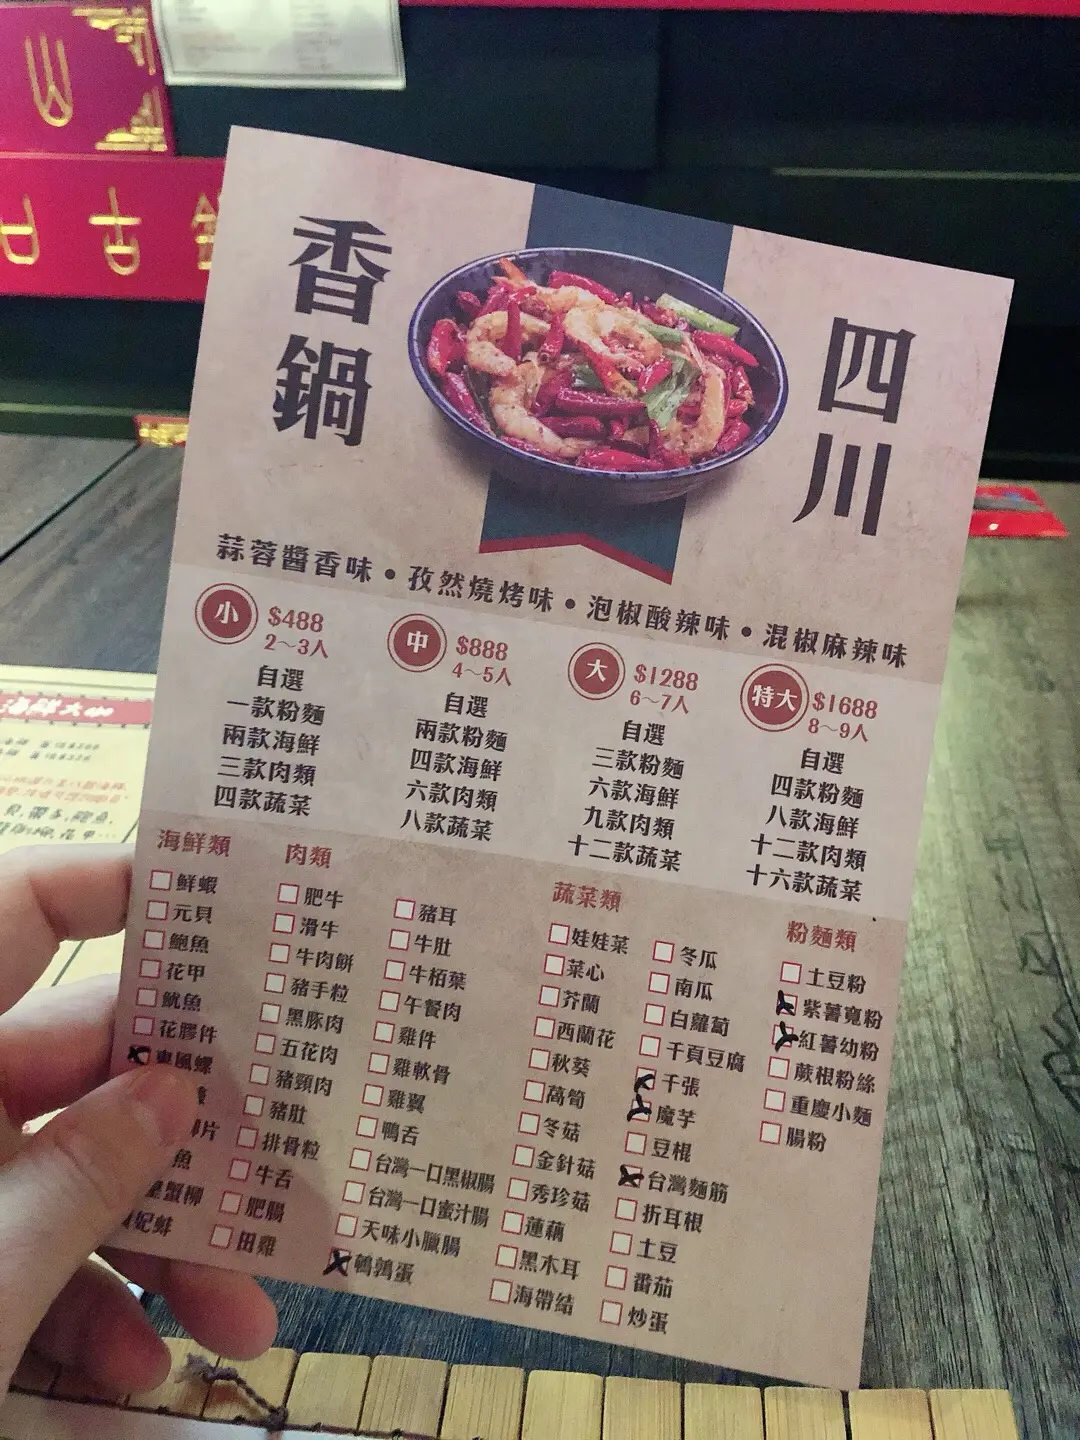 四川
香鍋
蒜蓉醬香味•孜然燒烤味•泡椒酸辣味•混椒麻辣味
小 $488
2～3人
自選
一款粉麵
兩款海鮮
三款肉類
四款蔬菜
中 $888
4～5人
自選
兩款粉麵
四款海鮮
六款肉類
八款蔬菜
大 $1288
6～7人
自選
三款粉麵
六款海鮮
九款肉類
十二款蔬菜
特大 $1688
8～9人
自選
四款粉麵
八款海鮮
十二款肉類
十六款蔬菜
海鮮類
鮮蝦
元貝
鮑魚
花甲
魷魚
花膠件
東風螺
片
魚
蟹柳
妃蚌
肉類
肥牛
滑牛
牛肉餅
豬手粒
黑豚肉
五花肉
豬頸肉
豬肚
排骨粒
牛舌
肥腸
田雞
豬耳
牛肚
牛栢葉
午餐肉
雞件
雞軟骨
雞翼
鴨舌
台灣一口黑椒腸
台灣一口蜜汁腸
天味小臘腸
鵪鶉蛋
蔬菜類
娃娃菜
菜心
芥蘭
西蘭花
秋葵
萵筍
冬菇
金針菇
秀珍菇
蓮藕
黑木耳
海帶結
冬瓜
南瓜
白蘿蔔
千頁豆腐
千張
魔芋
豆棍
台灣麵筋
折耳根
土豆
番茄
炒蛋
粉麵類
土豆粉
紫薯寬粉
紅薯幼粉
蕨根粉絲
重慶小麵
腸粉